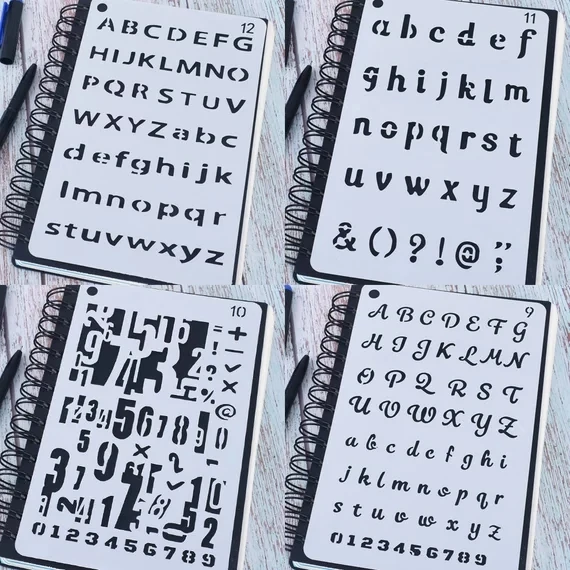 12
ABCDEFG
HIJKLMNO
PQRSTUV
WXYZabc
defghijk
lmnopqr
stuvwxyz
11
abcdef
ghijklm
nopqrst
uvwxyz
&()?!@;
10
=+
!−
1234567890
0123456789
9
ABCDEFG
HIJKLMN
OPQRST
UVWXYZ
abcdefghi
jklmnopqr
stuvwxyz
0123456789